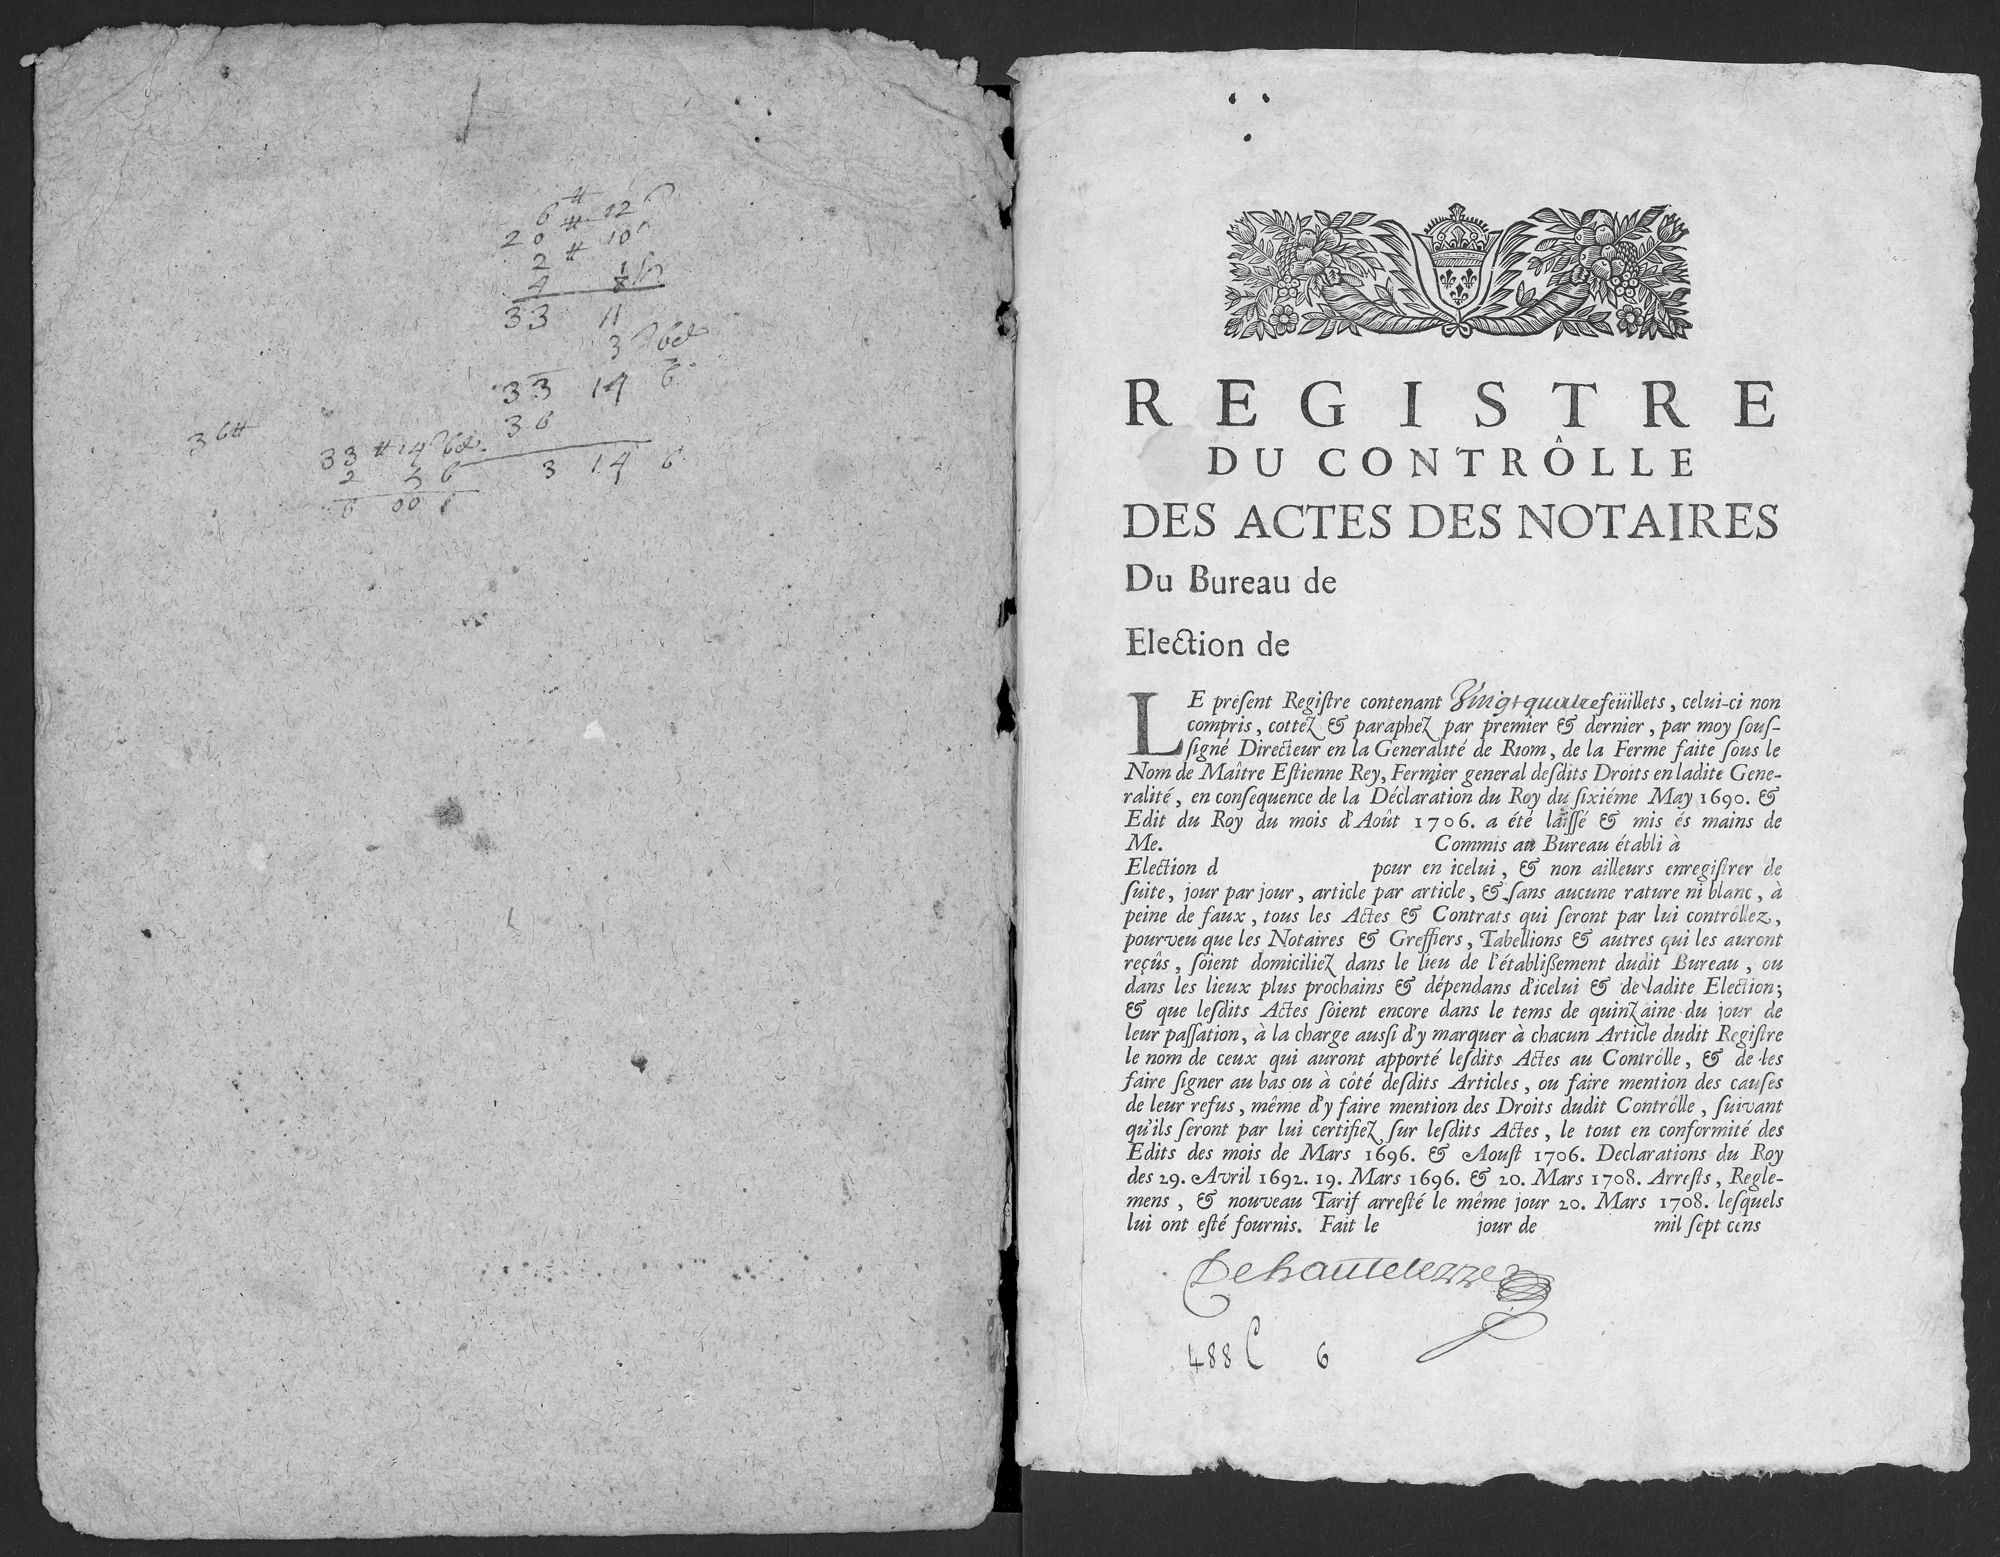 6 # 12
20 # 10
2 #
4
33 11
3 6d
33 14 6
36
3 14 6
36#
33 # 14 6d
2 5 6
6 00
REGISTRE
DU CONTRÔLLE
DES ACTES DES NOTAIRES
Du Bureau de
Election de
LE preſent Regiſtre contenant Vingt quatre feüillets, celui-ci non
compris, cottez & paraphez par premier & dernier, par moy ſouſ-
ſigné Directeur en la Generalité de Riom, de la Ferme faite ſous le
Nom de Maître Eſtienne Rey, Fermier general deſdits Droits en ladite Gene-
ralité, en conſequence de la Déclaration du Roy du ſixiéme May 1690. &
Edit du Roy du mois d'Août 1706. a été laiſſé & mis és mains de
Me. Commis au Bureau établi à
Election d pour en icelui, & non ailleurs enregiſtrer de
ſuite, jour par jour, article par article, & ſans aucune rature ni blanc, à
peine de faux, tous les Actes & Contrats qui ſeront par lui contrôllez,
pourveu que les Notaires & Greffiers, Tabellions & autres qui les auront
reçûs, ſoient domiciliez dans le lieu de l'établißement dudit Bureau, ou
dans les lieux plus prochains & dépendans d'icelui & de ladite Election;
& que leſdits Actes ſoient encore dans le tems de quinzaine du jour de
leur paſſation, à la charge auſſi d'y marquer à chacun Article dudit Regiſtre
le nom de ceux qui auront apporté leſdits Actes au Contrôlle, & de les
faire ſigner au bas ou à côté deſdits Articles, ou faire mention des cauſes
de leur refus, même d'y faire mention des Droits dudit Contrôlle, ſuivant
qu'ils ſeront par lui certifiez ſur leſdits Actes, le tout en conformité des
Edits des mois de Mars 1696. & Aouſt 1706. Declarations du Roy
des 29. Avril 1692. 19. Mars 1696. & 20. Mars 1708. Arreſts, Regle-
mens, & nouveau Tarif arreſté le même jour 20. Mars 1708. leſquels
lui ont eſté fournis. Fait le jour de mil ſept cens
488 C 6